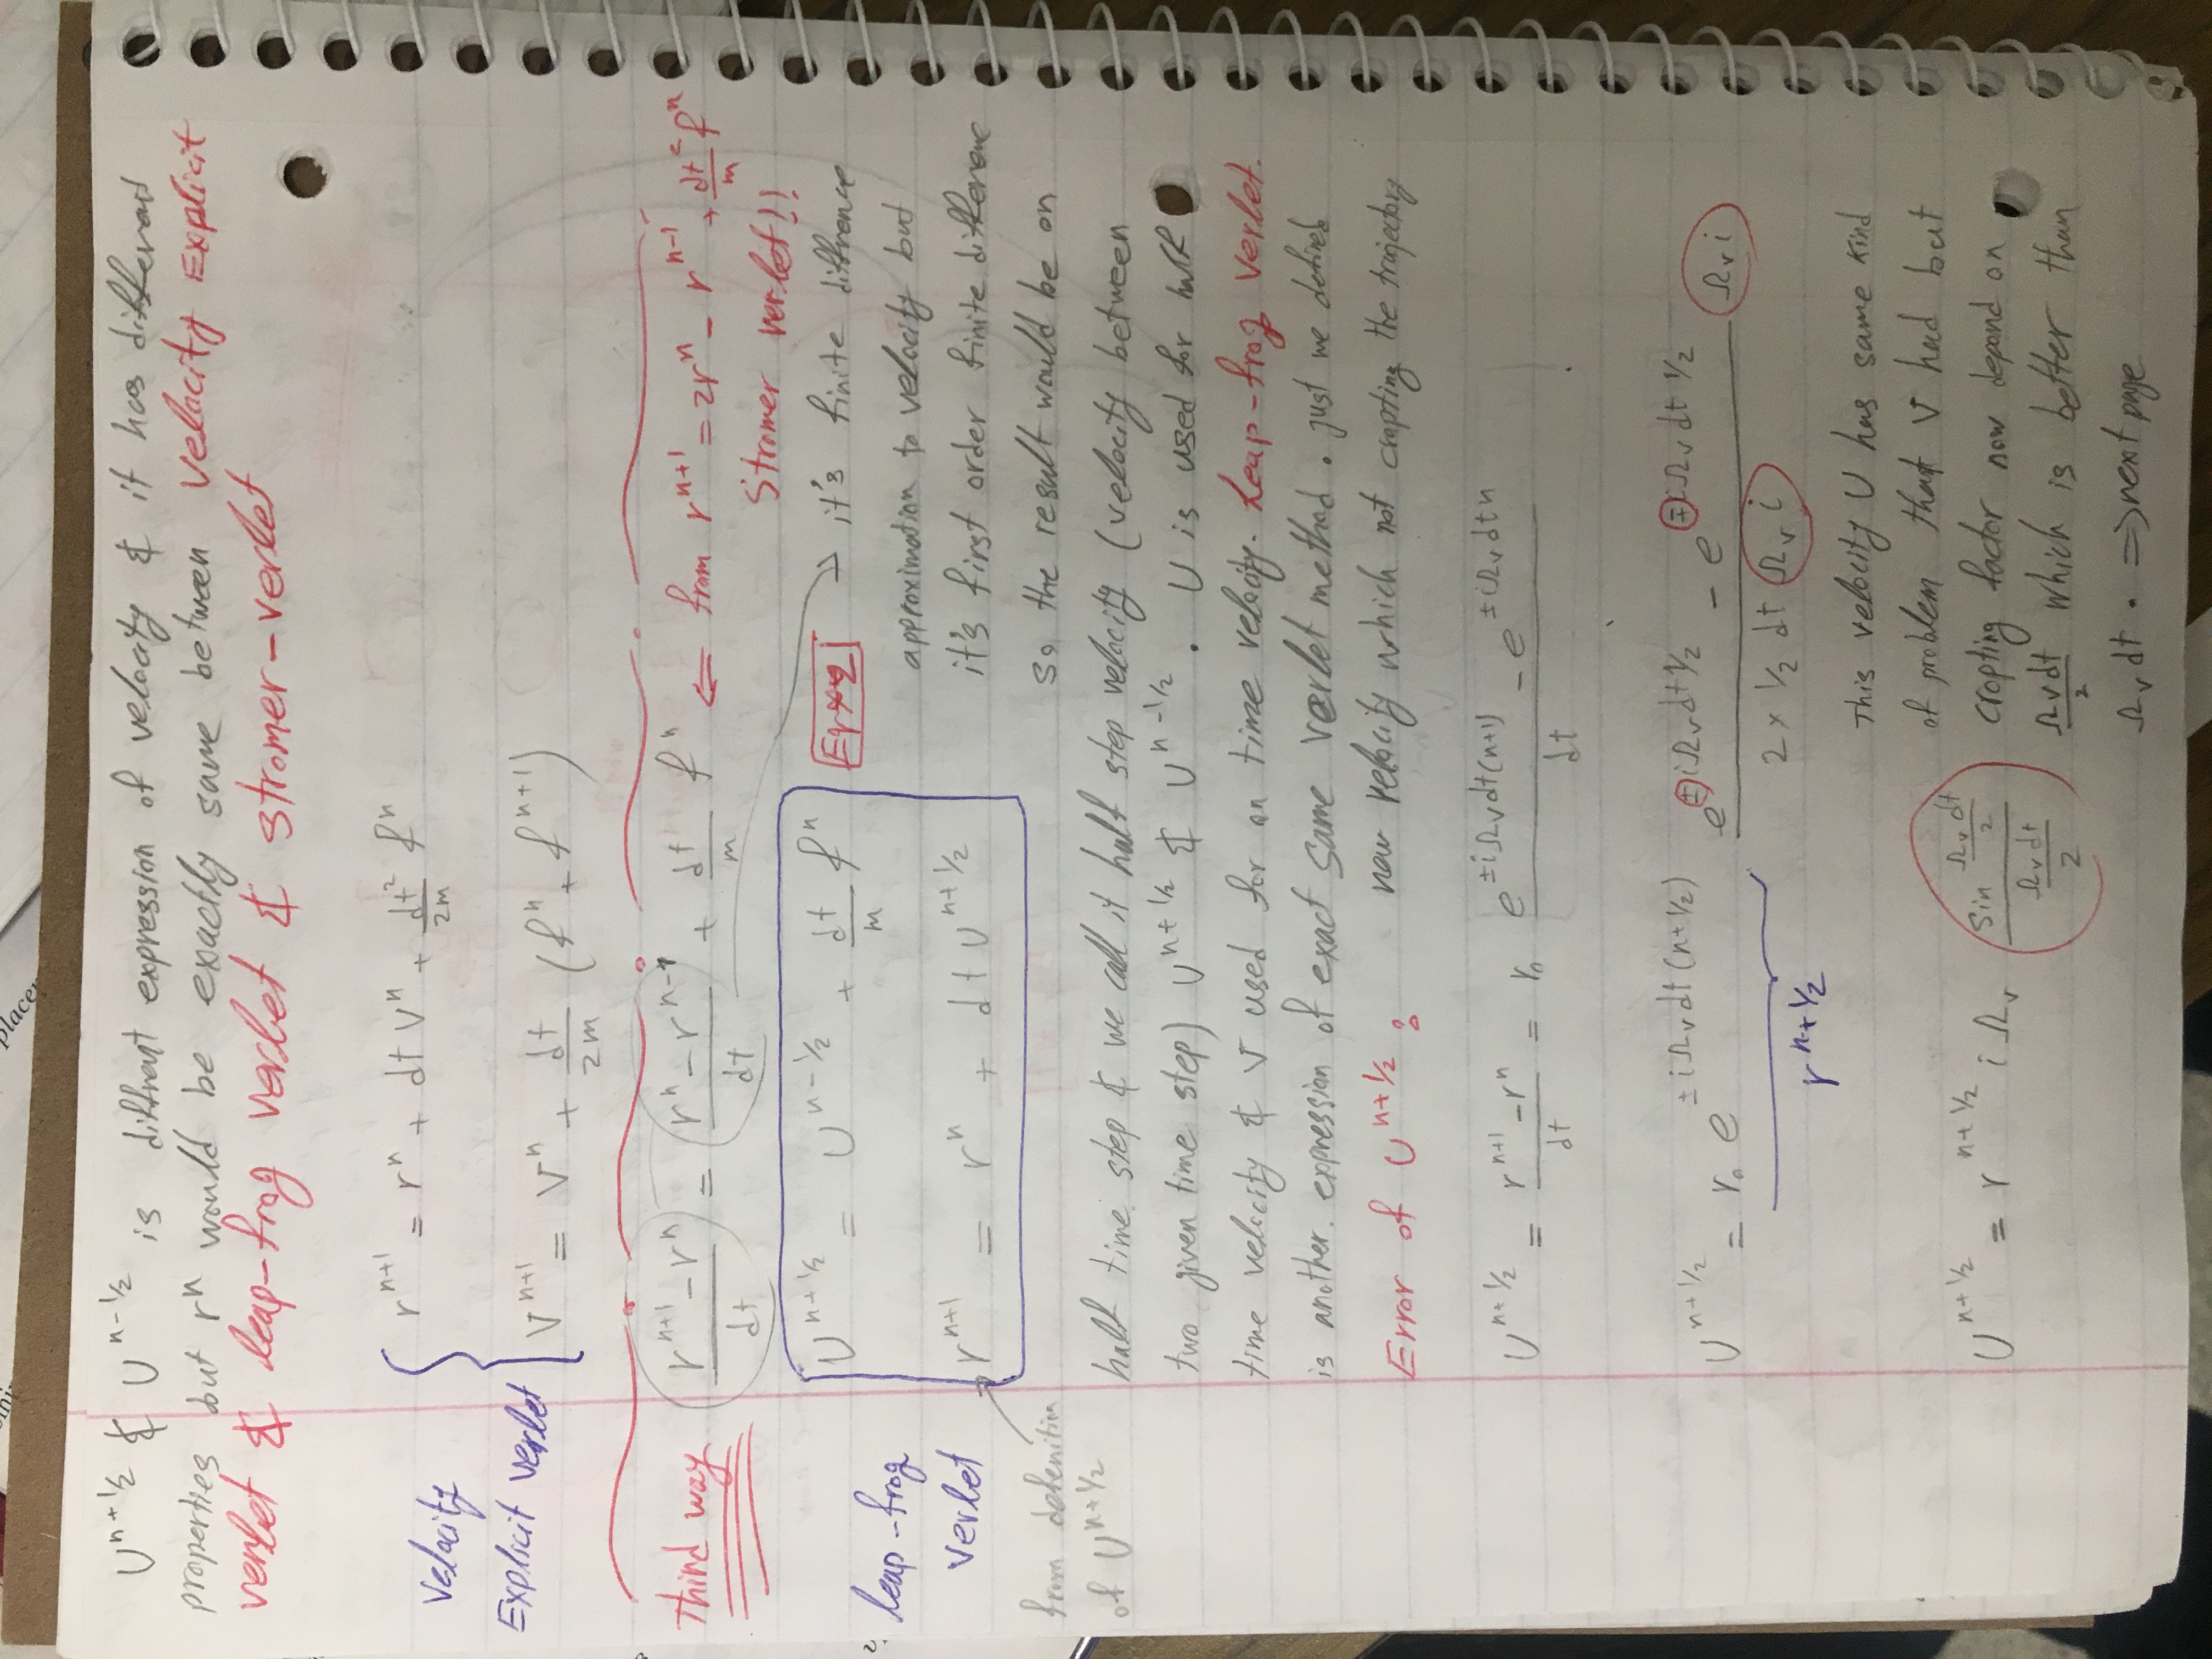 placer
U^{n+1/2} & U^{n-1/2} is diffrent expression of velocity & it has different
properties but r^n would be exactly same between Velocity Explicit
verlet & leap-frog verlet & stromer-verlet
Velocity
Explicit verlet
r^{n+1} = r^n + dt V^n + dt²/2m f^n
V^{n+1} = V^n + dt/2m (f^n + f^{n+1})
Third way
(r^{n+1} - r^n)/dt = (r^n - r^{n-1})/dt + dt/m f^n ⇐ from r^{n+1} = 2r^n - r^{n-1} + dt²/m f^n
Stromer verlet!!
leap-frog
verlet
U^{n+1/2} = U^{n-1/2} + dt/m f^n
r^{n+1} = r^n + dt U^{n+1/2}
from defenition
of U^{n+1/2}
→ it's finite diffrence
approximation to velocity but
it's first order finite difference
so the result would be on
half time step & we call it half step velocity (velocity between
two given time step) U^{n+1/2} & U^{n-1/2} . U is used for half
time velocity & V used for on time velocity. Leap-frog Verlet.
is another. expression of exact same Verlet method . just we defined
new velocity which not crapting the trajectory
Error of U^{n+1/2} :
U^{n+1/2} = (r^{n+1} - r^n)/dt = r₀ (e^{±iΩ_v dt(n+1)} - e^{±iΩ_v dt n})/dt
U^{n+1/2} = r₀ e^{±iΩ_v dt (n+1/2)} (e^{±iΩ_v dt 1/2} - e^{∓iΩ_v dt 1/2})/(2 × 1/2 dt Ω_v i) Ω_v i
r^{n+1/2}
This velocity U has same kind
of problem that V had but
cropting factor now depend on
Ω_v dt/2 which is better than
Ω_v dt . ⇒ next page
U^{n+1/2} = r^{n+1/2} i Ω_v (sin Ω_v dt/2)/(Ω_v dt/2)